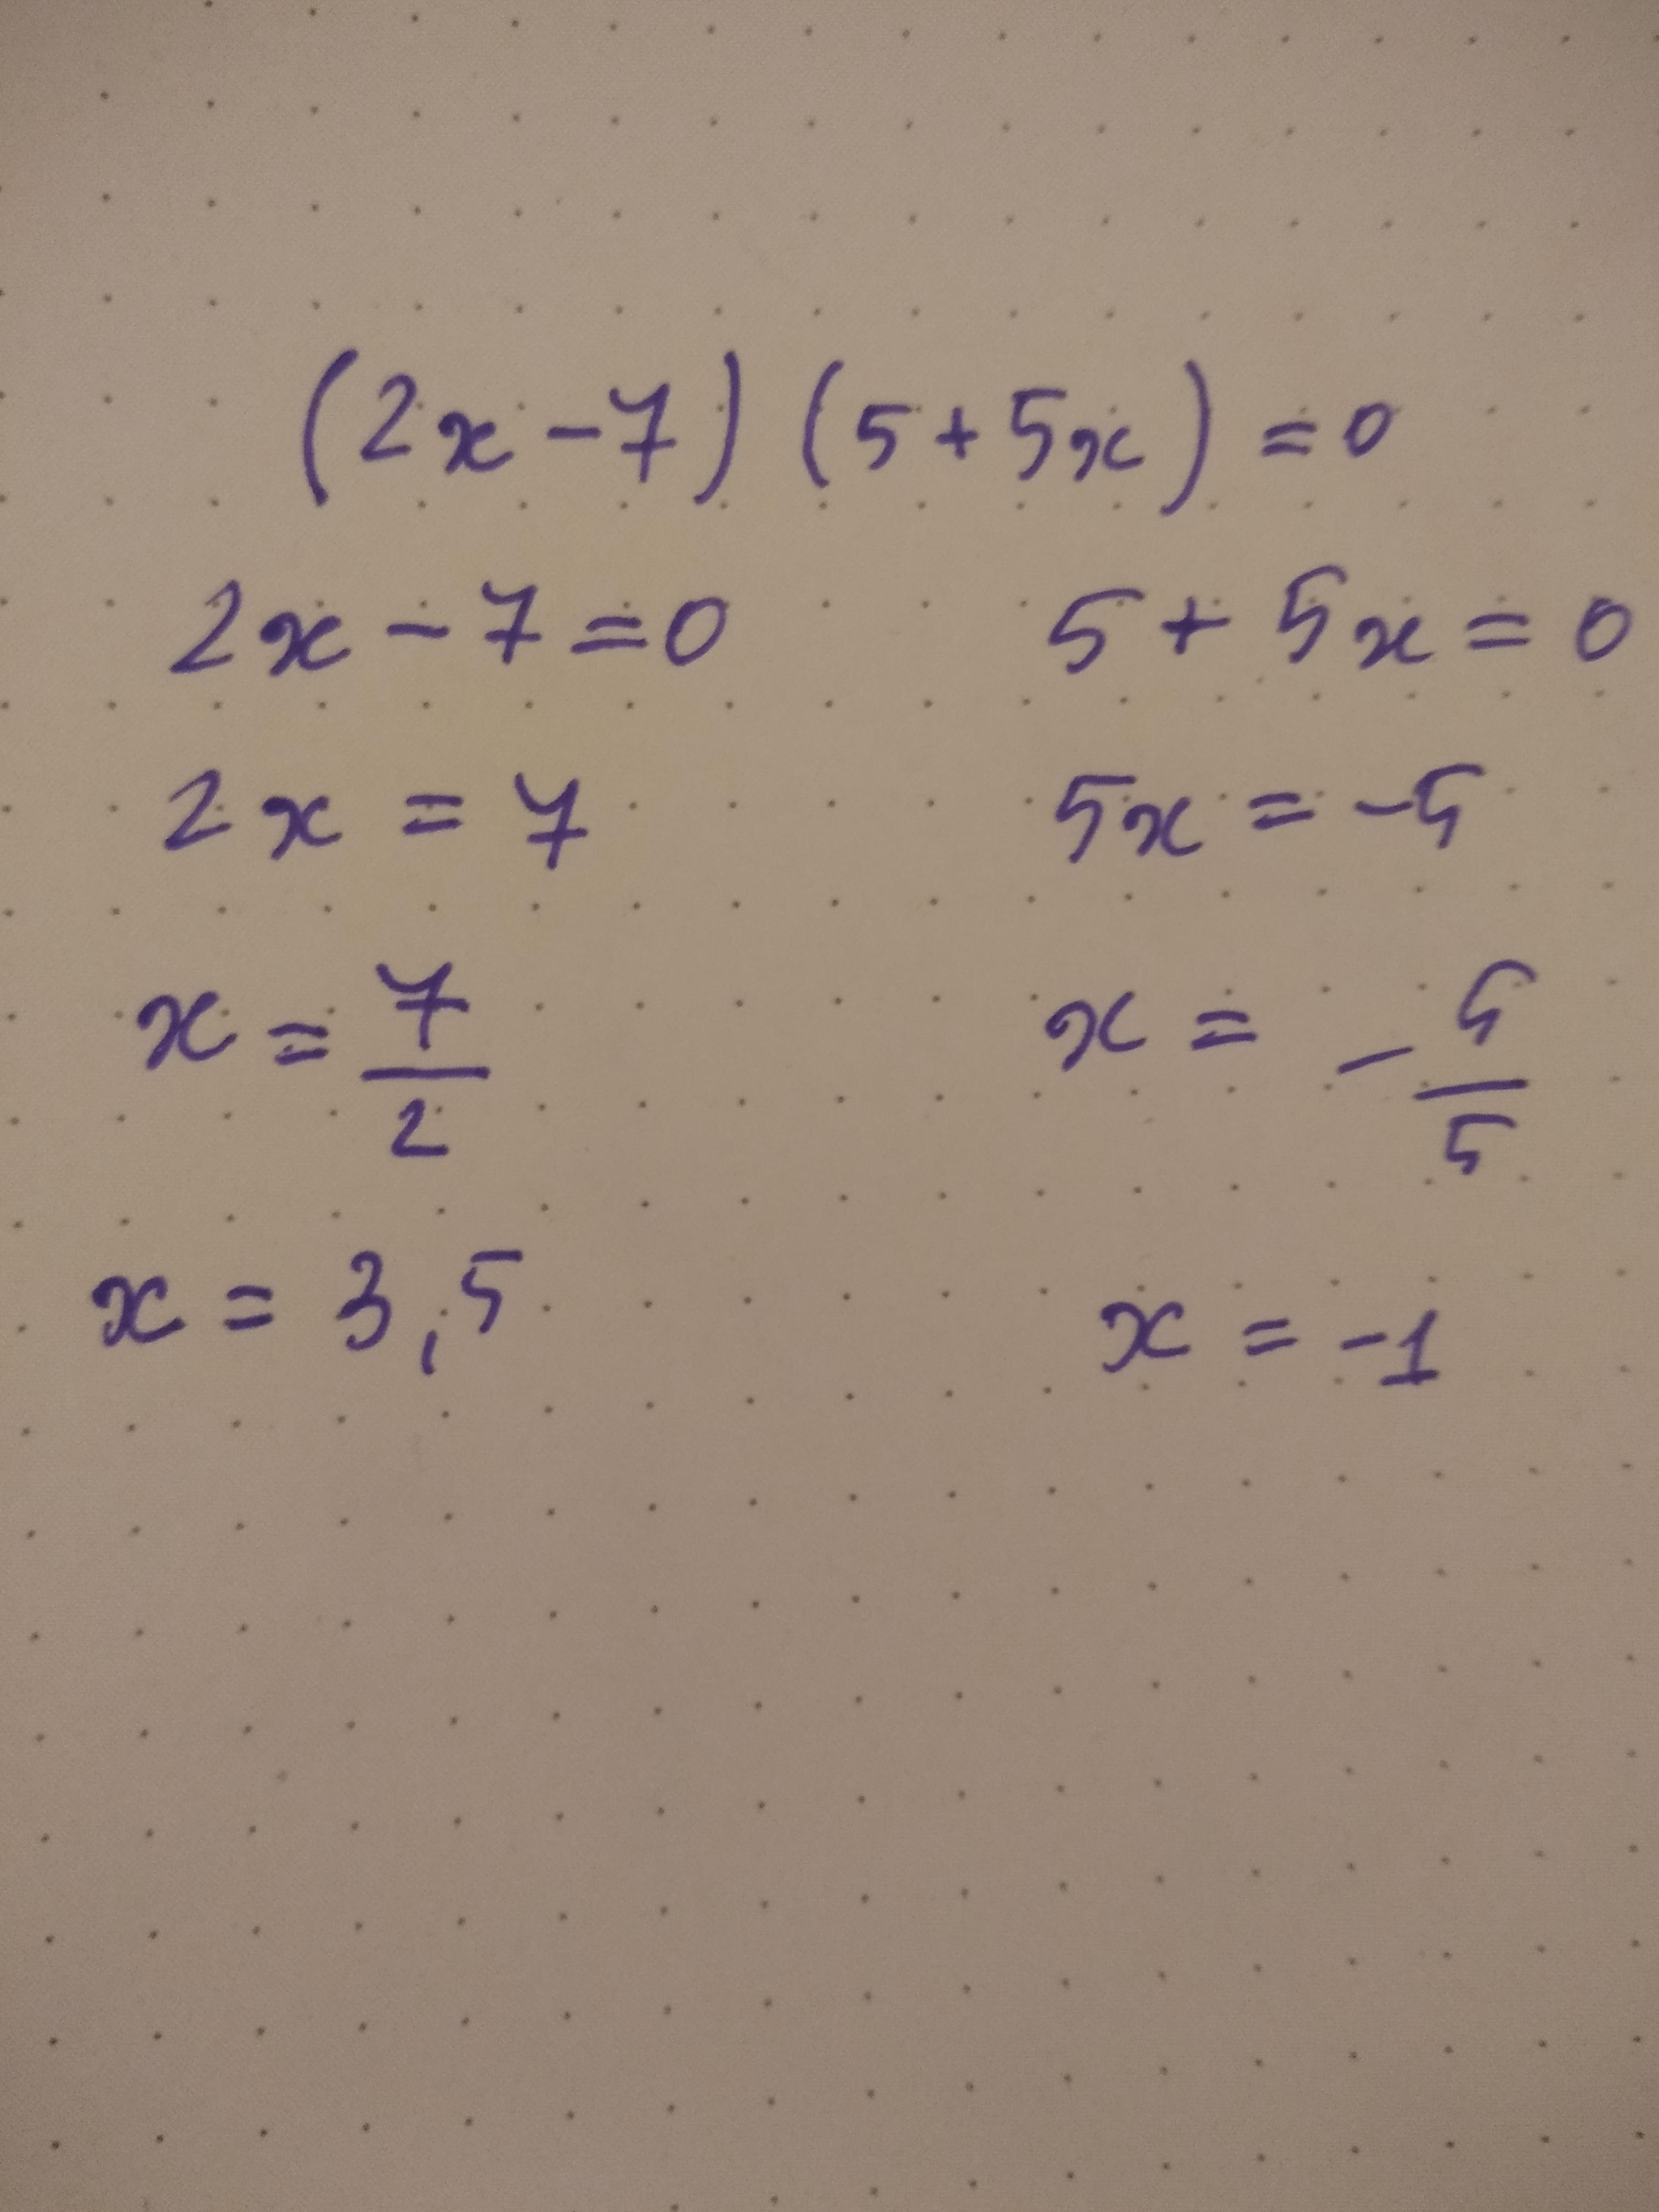 (2x-7) (5+5x) = 0
2x - 7 = 0 5 + 5x = 0
2x = 7 5x = -5
x = 7/2 x = - 5/5
x = 3,5 x = -1